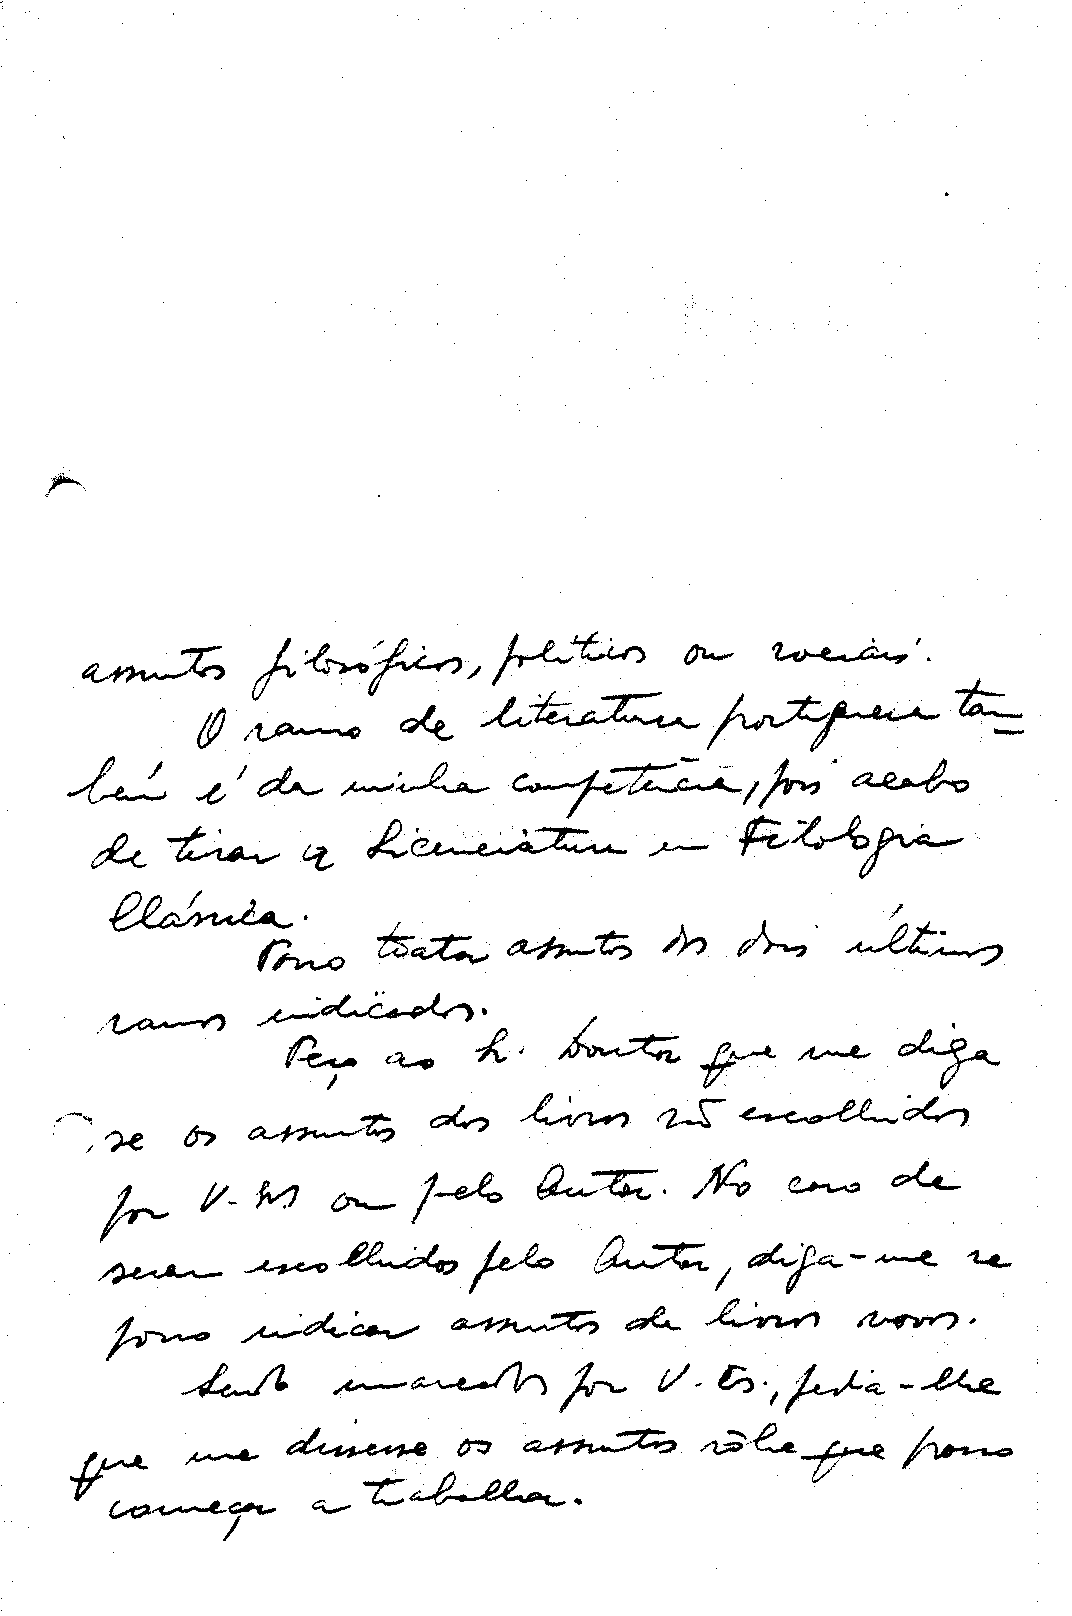 assuntos filosóficos, políticos ou sociais.
O ramo de literatura portuguesa tam-
bém é da minha competência, pois acabo
de tirar a Licenciatura em Filologia
Clássica.
Posso tratar assuntos dos dois últimos
ramos indicados.
Peço ao Sr. Doutor que me diga
se os assuntos dos livros são escolhidos
por V. ou pelo Autor. No caso de
serem escolhidos pelo Autor, diga-me se
posso indicar assuntos de livros novos.
Sendo marcados por V. Es., pedia-lhe
que me dissesse os assuntos sôbre que posso
começar a trabalhar.